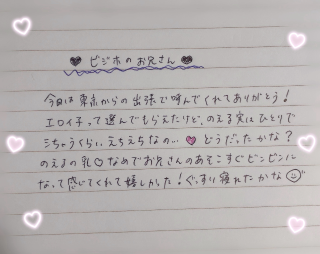 ♥ ビジホのお兄さん ♥
今日は東京からの出張で呼んでくれてありがとう!
エロイ子って選んでもらえたけど、のえる実はひとりで
しちゃうくらい、えちえちなの…♥ どうだったかな?
のえるの乳♡なめてお兄さんのあそこすぐビンビンに
なって感じてくれて嬉しかった!ぐっすり寝れたかな